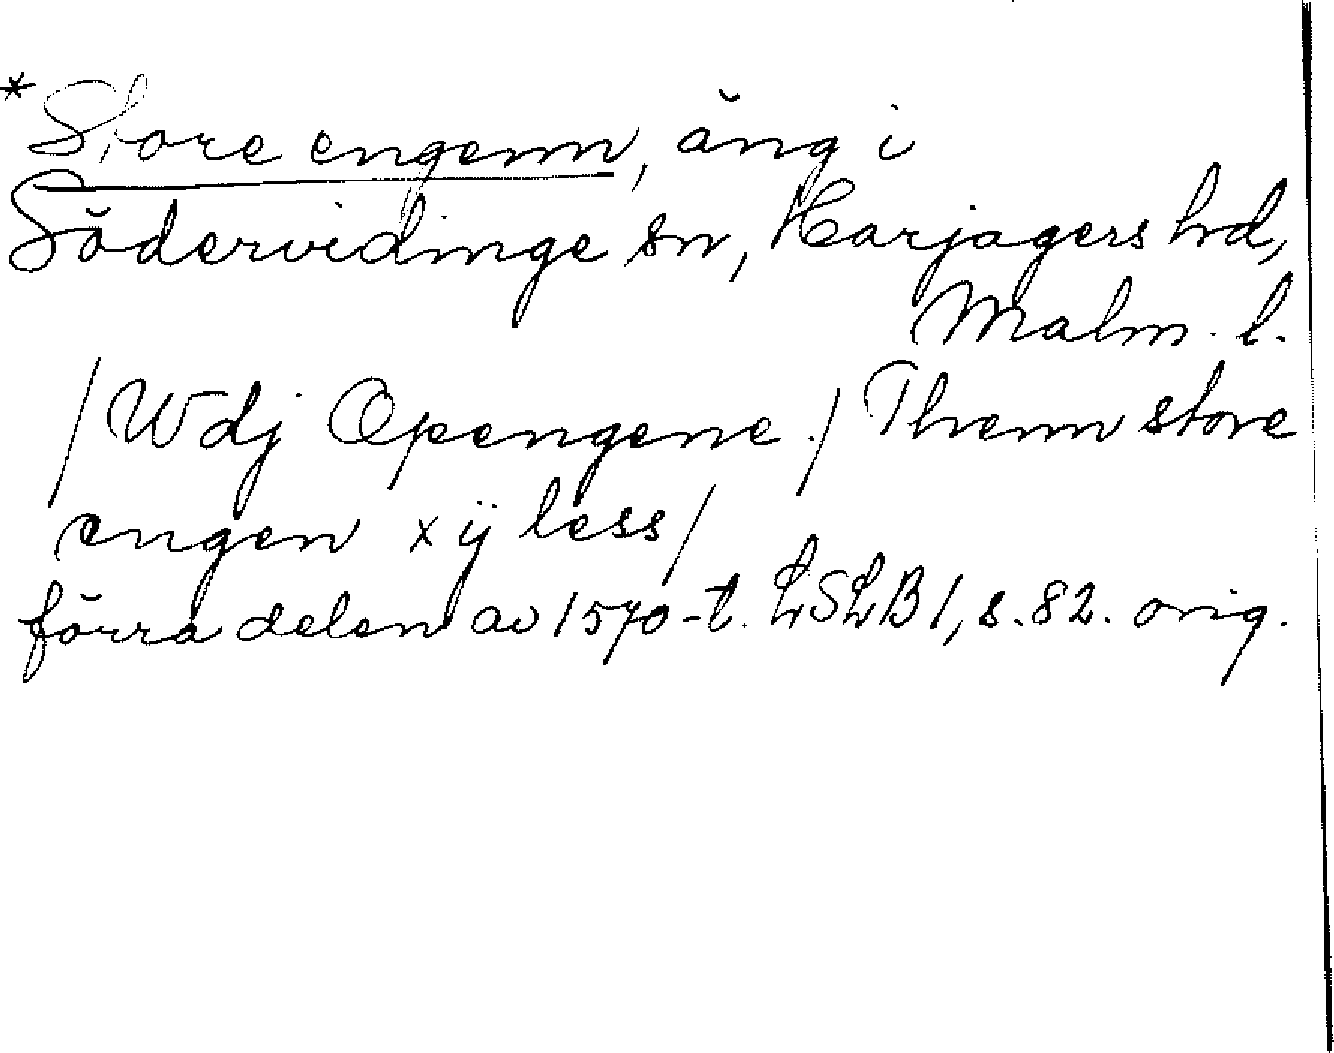 *Store engenn, äng i
Södervidinge sn, Harjagers hd,
Malm. l.
/Wdj Opengene./Thenn store
engen xij less/
förra delen av 1570-t. LSLB 1, s. 82. orig.